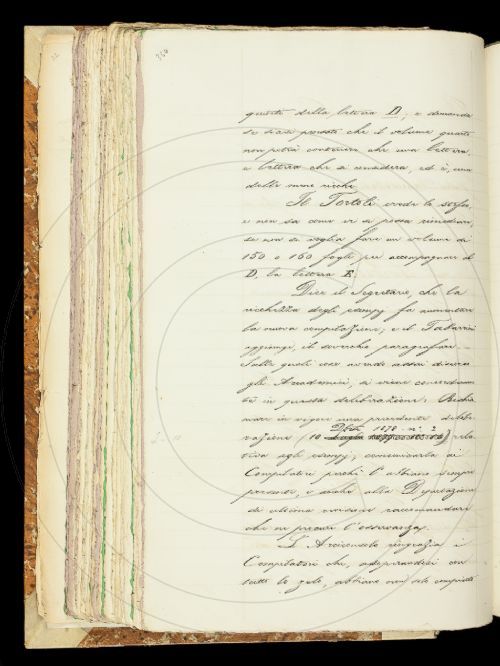 350
quarto della lettera D; e domanda
se siasi pensato che il volume quarto
non potrà contenere che una lettera,
e lettera che si considera, ed è, una
delle meno ricche
Il Tortoli crede lo stesso,
e non sa come vi si possa rimediare,
se non si voglia fare un volume di
150 o 160 fogli, per accompagnare il
D, la lettera E.
Dice il Segretario, che la
ricchezza degli esempj fa aumentare
la nuova compilazione; e il Tabarrini
aggiunge, il soverchio paragrafare.
Sulle quali cose avendo assai discusso
gli Accademici, si viene concordemen
te in questa deliberazione: Richia
mare in vigore una precedente delibe
1878. n°. 2
razione (10 rela
tiva agli esempj; comunicarla ai
Compilatori perchè l'abbiano sempre
presente, e anche alla Deputazione
di ultima revisione raccomandare
che ne procuri l'osservanza.
L'Arciconsolo ringrazia i
Compilatori che, adoperandosi con
tutto lo zelo, abbiano non solo compiuto